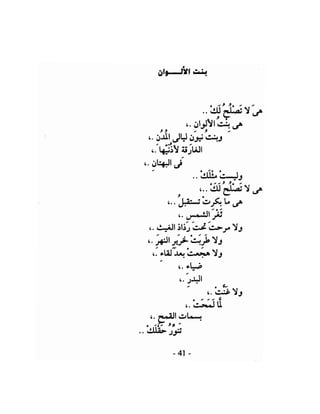 بنت الألـــــوان
هىَ لا تَصلُحُ لَكَ ..
هى بِنتُ الألوانِ ،.
وبنتُ نيونِ ليالى المُدُنِ ،.
الغارقةِ لأُذُنَيْها ،.
فى البهتانِ ،.
وليستْ مثْلَكَ ..
هى لا تَصْلُحُ لَكَ ،..
هى ما بكرتْ تستقبلُ ،..
ثَغْرَ الشمسِ ،.
ولا مرحتْ تحتَ رَذاذِ الغيث ،.
ولا طَرِبَتْ لخريرِ النهرِ ،.
ولا هجعتْ بعدَ لقاءِ ،.
ضياءِ ،.
البدرِ ،.
ولا غَنَّتْ ،.
لَمَّا لَمَحَتْ ،.
بسماتِ القمحِ ،.
تنوِّرُ حَقْلَكَ ..
- 41 -